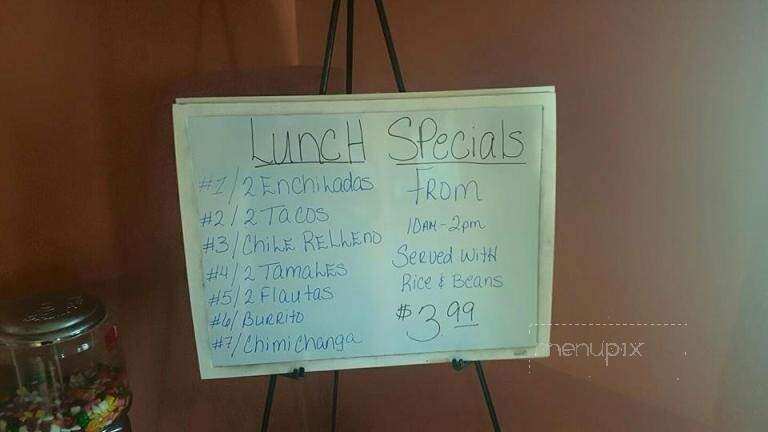 Lunch Specials
#1/2 Enchiladas
#2/2 Tacos
#3/Chile Relleno
#4/2 Tamales
#5/2 Flautas
#6/Burrito
#7/Chimichanga
From
10AM-2pm
Served With
Rice & Beans
$3.99
menupix